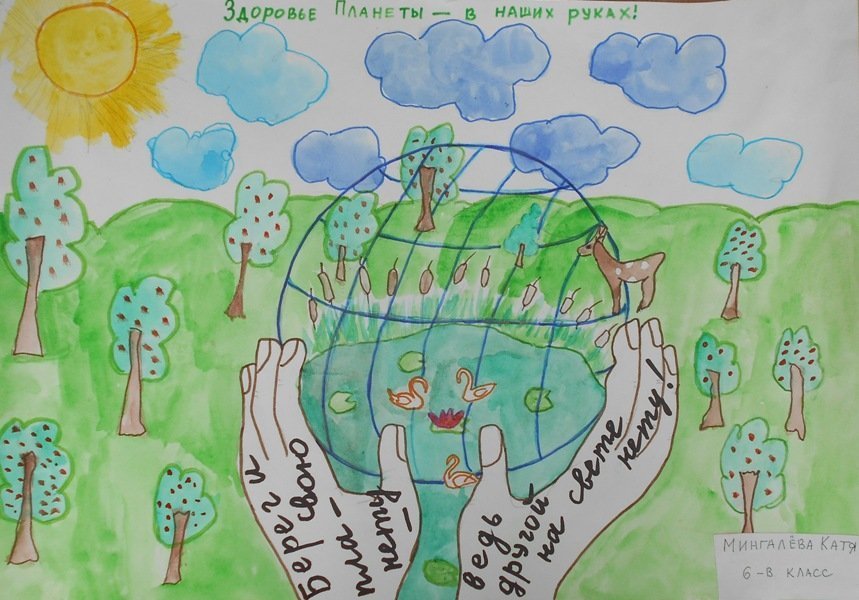 Здоровье Планеты – в наших руках!
Береги
свою
пла-
нету –
ведь
другой
на свете
нету!
Мингалёва Катя
6-в класс